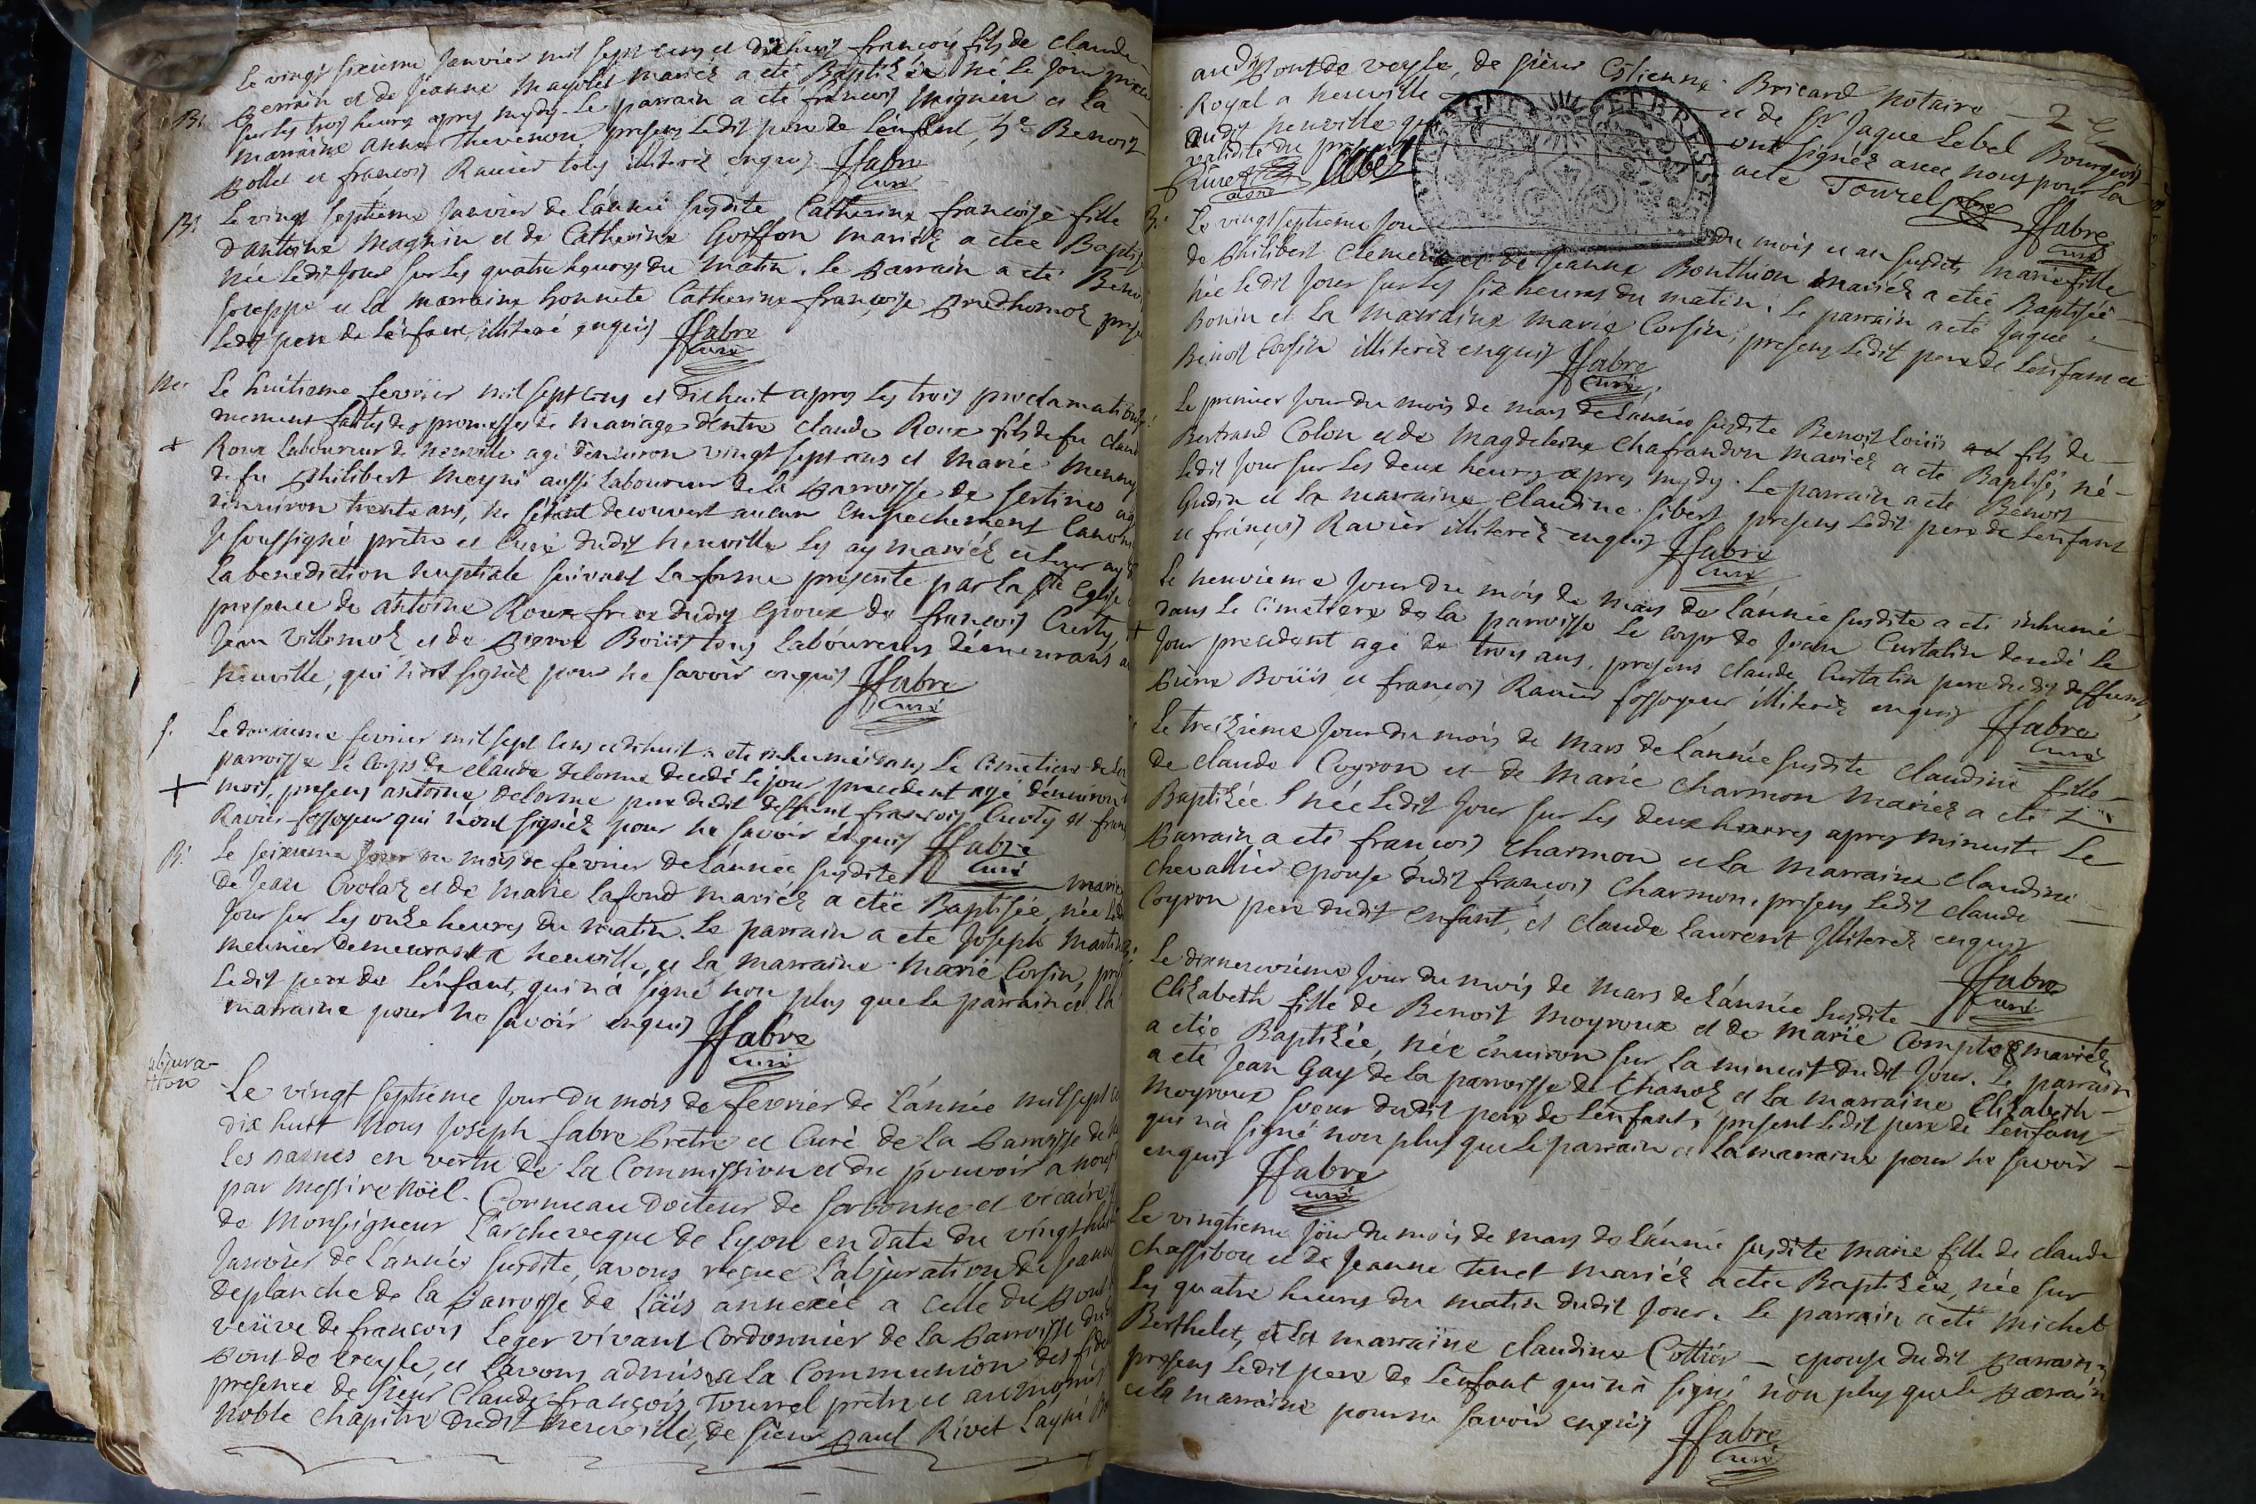 Le vingt sixieme Janvier mil sept cens et dixhuit francois fils de claude
perrain et de Jeanne mariéz a eté Baptizée né le Jour
B.
sur les trois heures apres mydy. Le parrain a eté francois et La
marraine anne Thevenon presens Ledit pere de Lenfant, Benoist
pollet et francois Ravier tous illiterez enquis ffabre
curé
B.
Le vingt septieme Janvier de L'année susdite Catherine francoise fille
d'antoine magnin et de Catherine Goiffon mariéz a etée
née Ledit Jour sur les quatre heures du matin. Le parrain a eté
et La marraine honnete Catherine francoise prudhomoz
Ledit pere de Lenfant, illiteré enquis ffabre
curé
Le huitieme fevrier mil sept cens et dixhuit apres les trois
faites des promesses de mariage d'entre claude Roux fils de fu
+
Roux Laboureur de neuville agé d'environ vingt sept ans et marie
de fu philibert meyni aussi Laboureur de la parroisse de sertines
d'environ trente ans, ne s'etant decouvert aucun empechement
Je soussigné pretre et Curé dudit neuville les ay mariéz et leur ay
La benediction nuptiale suivant La forme presente par La ste Eglise
presence de antoine Roux frere dudit epoux de francois Curty
Jean villemoz et de pierre Boüis tous Laboureurs demeurans
neuville, qui n'ont signéz pour ne savoir enquis ffabre
curé
S.
Le fevrier mil sept cens et dihuit a eté inhumé dans Le Cimetiere
parroisse Le Corps de claude delorme decedé Le jour precedent agé d'environ
+
mois, presens antoine delorme pere dudit deffunt francois Curty et
Ravier fossoyeur qui n'ont signéz pour ne savoir enquis ffabre
curé
B.
Le seizieme Jour du mois de fevrier de L'année susdite
de Jean Cvolaz et de marie Lafond mariéz a etée Baptisée, née
Jour sur les onze heures du matin. Le parrain a eté Joseph
meunier demeurant a neuville, et La marraine marie Corsin,
Ledit pere de L'enfant, qui n'a signé non plus que Le parrain et La
marraine pour ne savoir enquis ffabre
curé
abjura-
tion
Le vingt septieme Jour du mois de fevrier de L'année mil sept
dix huit Nous Joseph fabre Pretre et Curé de La Parroisse de
Les Dames en vertu de La Commission et du pouvoir a nous
par messire Noël Cormeau Docteur de sorbonne et vicaire
de Monseigneur L'archeveque de Lyon en date du vingt
Janvier de L'année susdite, avons recue L'abjuration de
deplanche de La Parroisse de Laïs annexée a Celle du
veüve de francois Leger vivant Cordonnier de La Parroisse
Pont de veyle, et L'avons admise a La Communion des
presence de sieur Claude françois Tournel pretre et
noble chapitre dudit neuville, de sieur Paul Rivet
audit pont de veyle, de sieur Estienne Bricard notaire
Royal a neuville et de sr. Jaque Lebel Bourgeois
audit neuville ont signéz avec nous pour La
validité du acte Tournel ptre ffabre
curé
Lebel
B.
Le vingt septieme Jour du mois et an susdits marie fille
de philibert Clement et de Jeanne Bonthion mariéz a etée Baptisée
née Ledit Jour sur les six heures du matin. Le parrain a eté Jaque
Bonin et La marraine marie Corsin, presens Ledit pere de Lenfant et
Benoist Corsin illiterez enquis ffabre
curé
Le premier Jour du mois de mars de L'année susdite Benoist Loüis fils de
Bertrand Colon et de magdeleine Chafrandon mariéz a eté Baptisé, né
Ledit Jour sur les deux heures apres mydy. Le parrain a eté Benoist
Gudin et La marraine Claudine Sibert presens Ledit pere de Lenfant
et francois Ravier illiterez enquis ffabre
curé
Le neuvieme Jour du mois de mars de L'année susdite a eté inhumé
dans Le Cimetiere de La parroisse Le Corps de Jean Curtalin decedé Le
+
Jour precedent agé de trois ans, presens Claude Curtalin pere dudit deffunt,
Pierre Boüis et francois Ravier fossoyeur illiterez enquis ffabre
curé
Le treiziéme Jour du mois de mars de L'année susdite Claudine fille
de claude Coyron et de Marie Charmon Mariéz a eté
Baptizée née Ledit Jour sur les deux heures apres minuit Le
parrain a eté francois Charmon et La Marraine Claudine
Chevalier epouse dudit francois Charmon, presens Ledit claude
Coyron pere dudit enfant, et Claude Laurent Illiterez enquis
ffabre
curé
Le dixneuviéme Jour du mois de mars de L'année susdite
Elizabeth fille de Benoist moyroux et de marie Compte mariéz
a etée Baptizée, née environ sur La minuit dudit Jour. Le parrain
a eté Jean Gay de la parroisse de Chanoz, et La marraine Elizabeth
moyroux soeur dudit pere de Lenfant, present Ledit pere de Lenfant
qui n'a signé non plus que Le parrain et La marraine pour ne savoir
enquis ffabre
curé
Le vingtieme Jour du mois de mars de L'année susdite marie fille de claude
Chassibou et de Jeanne Tenet mariéz a etée Baptizée, née sur
les quatre heures du matin dudit Jour. Le parrain a eté michel
Berthelet, et La marraine claudine Cottier epouse dudit parrain
presens Ledit pere de Lenfant qui n'a signé non plus que Le parrain
et La marraine pour ne savoir enquis ffabre
curé